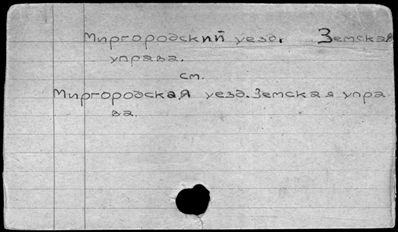 Миргородский уезд. Земская
управа.
см.
Миргородская уезд. Земская упра
ва.